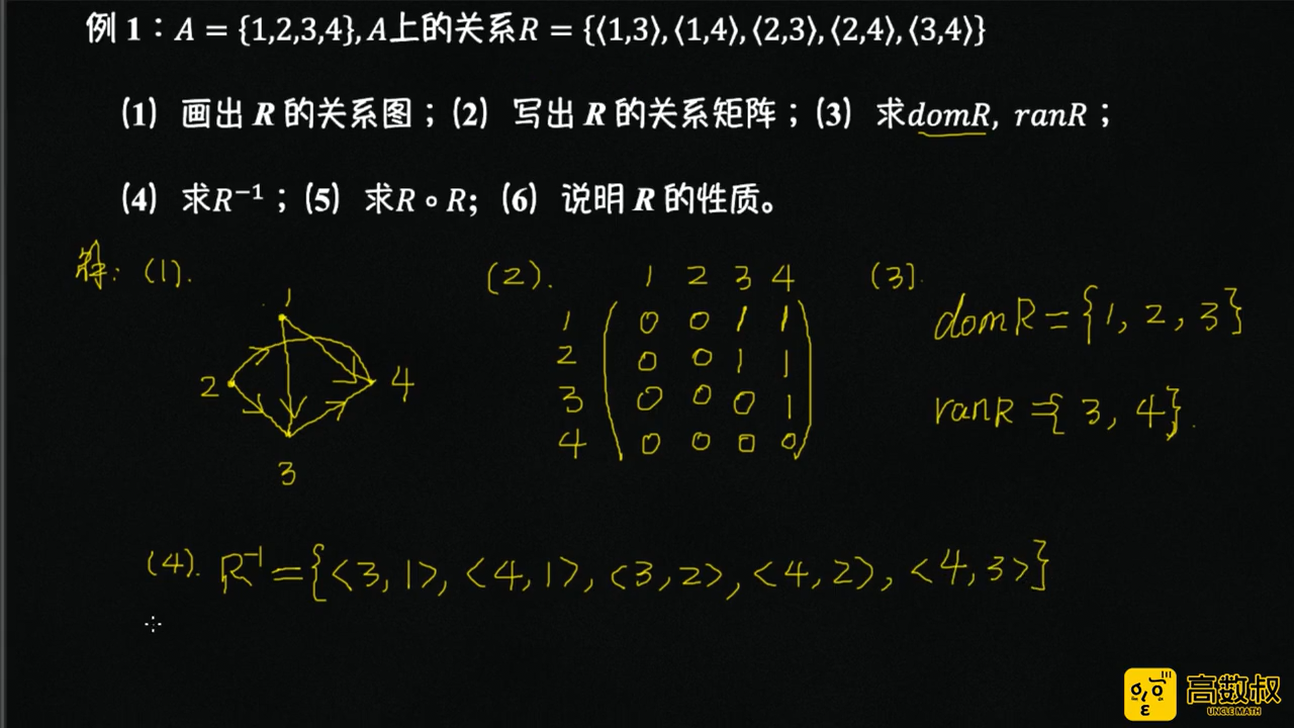 例 1：A = {1,2,3,4}, A上的关系R = {⟨1,3⟩,⟨1,4⟩,⟨2,3⟩,⟨2,4⟩,⟨3,4⟩}
(1) 画出 R 的关系图；(2) 写出 R 的关系矩阵；(3) 求domR, ranR；
(4) 求R⁻¹；(5) 求R∘R; (6) 说明 R 的性质。
解: (1).
1
2
4
3
(2).
1 2 3 4
1 0 0 1 1
2 0 0 1 1
3 0 0 0 1
4 0 0 0 0
(3).
domR = {1, 2, 3}
ranR = {3, 4}.
(4). R⁻¹ = {<3, 1>, <4, 1>, <3, 2>, <4, 2>, <4, 3>}
高数叔
UNCLE MATH